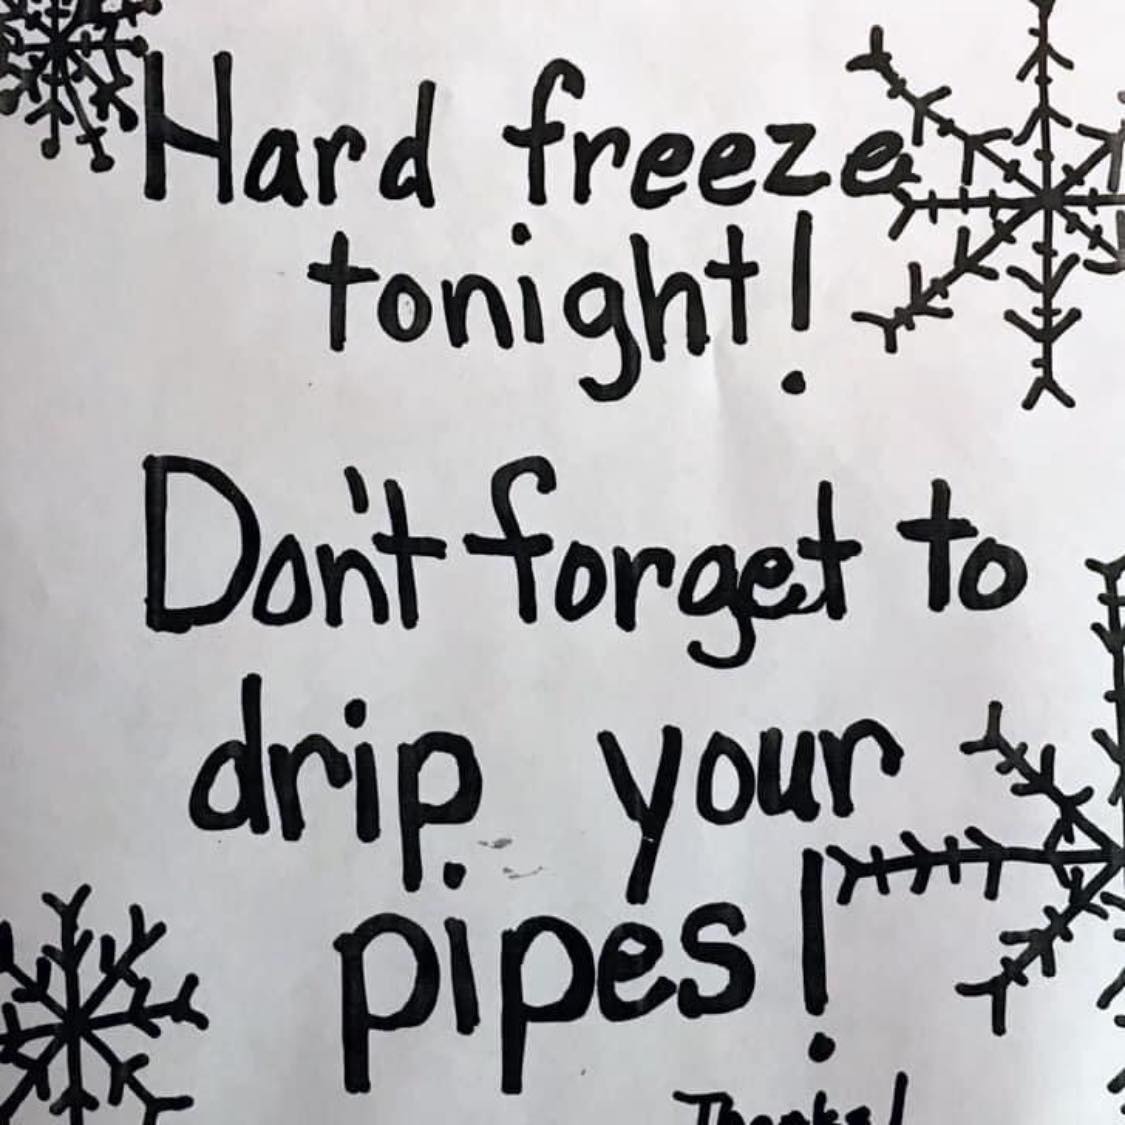 Hard freeze
tonight!
Don't forget to
drip your
pipes!
Thanks!